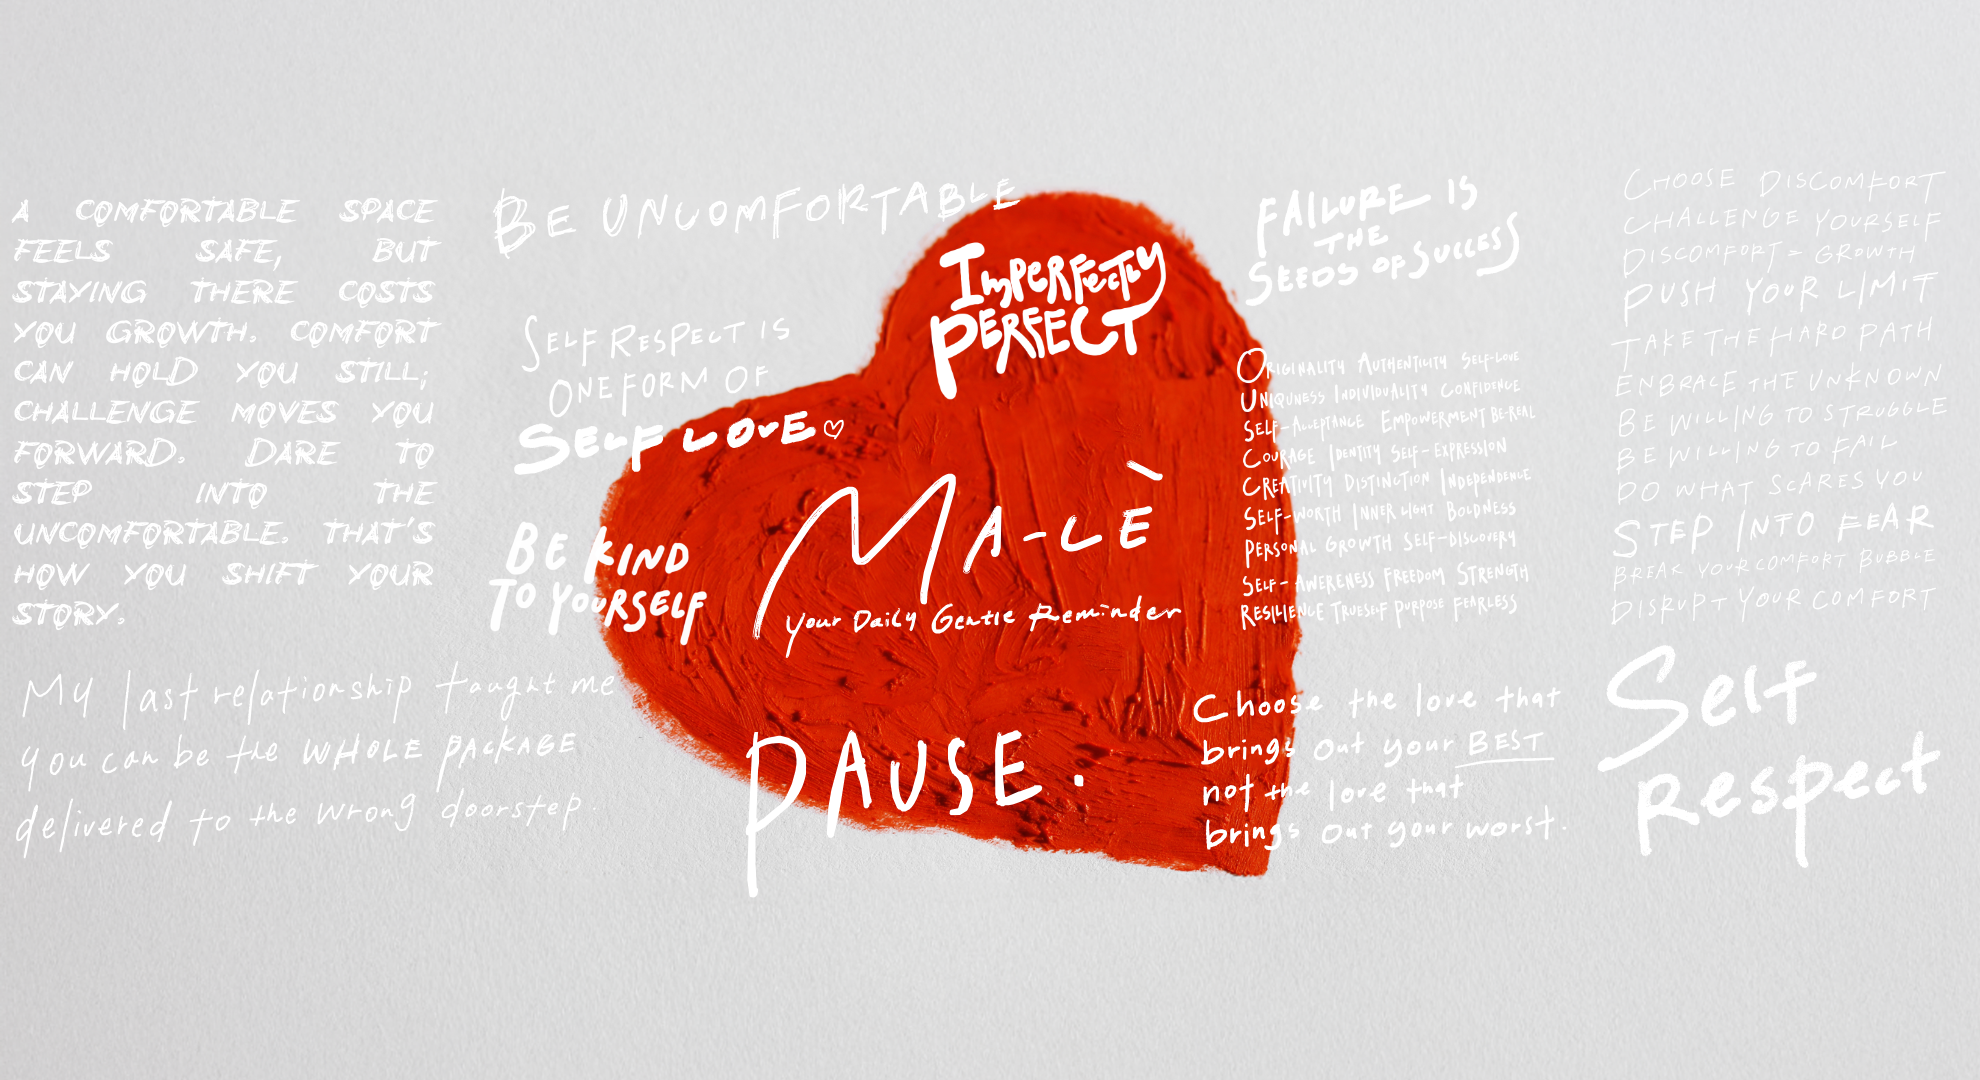 A COMFORTABLE SPACE
FEELS SAFE, BUT
STAYING THERE COSTS
YOU GROWTH. COMFORT
CAN HOLD YOU STILL;
CHALLENGE MOVES YOU
FORWARD. DARE TO
STEP INTO THE
UNCOMFORTABLE. THAT'S
HOW YOU SHIFT YOUR
STORY.
My last relationship taught me
you can be the WHOLE PACKAGE
delivered to the wrong doorstep.
BE UNCOMFORTABLE
SELF RESPECT IS
ONE FORM OF
SELF LOVE ♡
BE KIND
TO YOURSELF
IMPERFECTLY
PERFECT
MA-LÈ
your Daily Gentle Reminder
PAUSE.
FAILURE IS
THE
SEEDS OF SUCCESS
ORIGINALITY AUTHENTICITY SELF-LOVE
UNIQUNESS INDIVIDUALITY CONFIDENCE
SELF-ACCEPTANCE EMPOWERMENT BE-REAL
COURAGE IDENTITY SELF-EXPRESSION
CREATIVITY DISTINCTION INDEPENDENCE
SELF-WORTH INNER LIGHT BOLDNESS
PERSONAL GROWTH SELF-DISCOVERY
SELF-AWERENESS FREEDOM STRENGTH
RESILIENCE TRUESELF PURPOSE FEARLESS
Choose the love that
brings out your BEST
not the love that
brings out your worst.
CHOOSE DISCOMFORT
CHALLENGE YOURSELF
DISCOMFORT = GROWTH
PUSH YOUR LIMIT
TAKE THE HARD PATH
ENBRACE THE UNKNOWN
BE WILLING TO STRUGGLE
BE WILLING TO FAIL
DO WHAT SCARES YOU
STEP INTO FEAR
BREAK YOUR COMFORT BUBBLE
DISRUPT YOUR COMFORT
Self
Respect